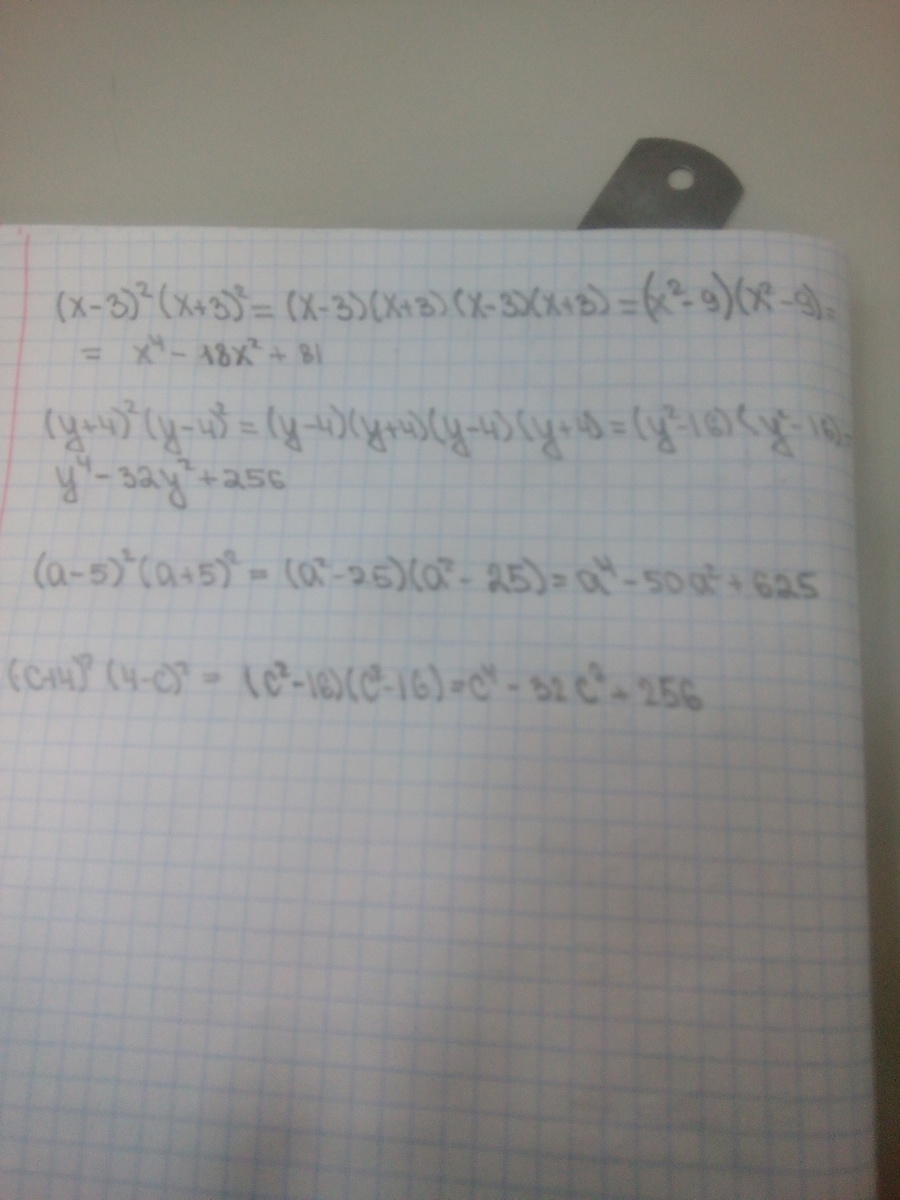 (x-3)²(x+3)² = (x-3)(x+3)(x-3)(x+3) = (x²-9)(x²-9) =
= x⁴ - 18x² + 81
(y+4)²(y-4)² = (y-4)(y+4)(y-4)(y+4) = (y²-16)(y²-16) =
y⁴ - 32y² + 256
(a-5)²(a+5)² = (a²-25)(a²-25) = a⁴ - 50a² + 625
(c+4)² (4-c)² = (c²-16)(c²-16) = c⁴ - 32c² + 256